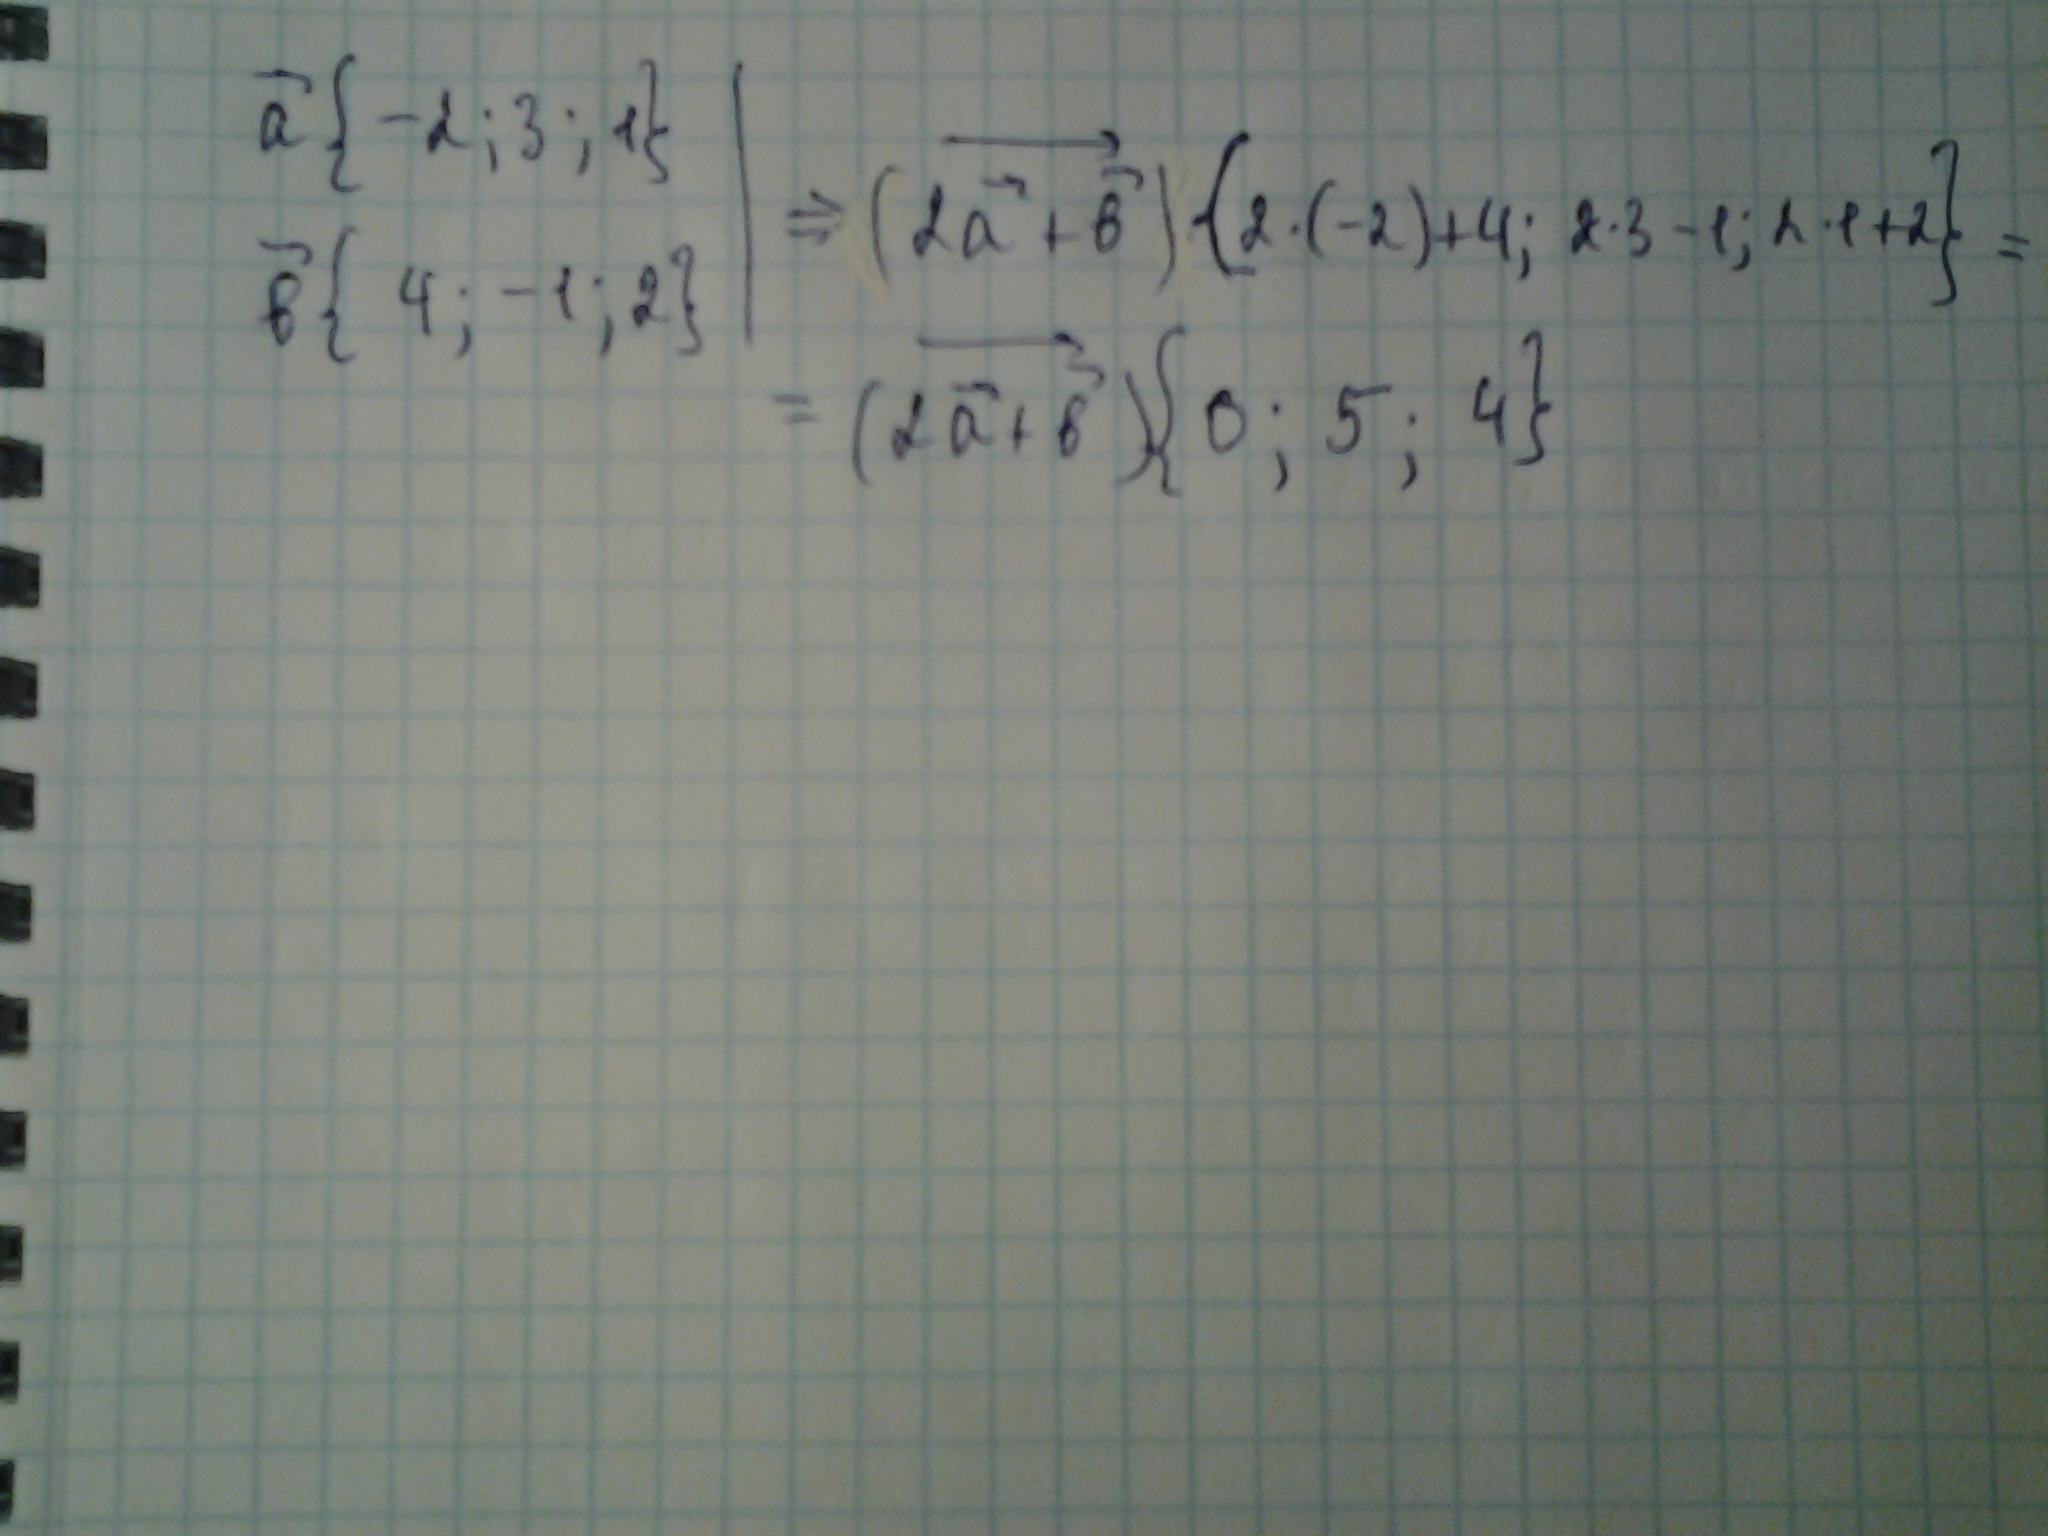 a⃗{-2; 3; 1}
b⃗{4; -1; 2}
⇒ (2a⃗ + b⃗) {2·(-2)+4; 2·3-1; 2·1+2} =
= (2a⃗ + b⃗) {0; 5; 4}